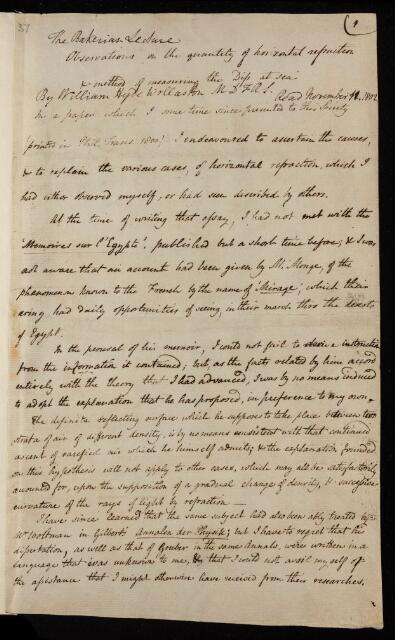 37
(1
The Bakerian Lecture
Observations on the quantity of horizontal refraction
& method of measuring the Dip at sea
By William Hyde Wollaston M.D. F.R.S. Read November 11. 1802
In a paper which I some time since presented to this Society
(printed in Phil. Trans. 1800) I endeavoured to ascertain the causes,
& to explain the various cases, of horizontal refraction, which I
had either observed myself, or had seen described by others.
At the time of writing that essay, I had not met with the
"Memoires sur l'Egypte". published but a short time before; & I was
not aware that an account had been given by M. Monge, of the
phenomenon known to the French by the name of Mirage; which their
army had daily opportunities of seeing, in their march thro the deserts
of Egypt.
In the perusal of his memoir, I could not fail to derive instruction
from the information it contained; but, as the facts related by him accord
entirely with the theory that I had advanced, I was by no means induced
to adopt the explanation that he has proposed, in preference to my own.
The definite reflecting surface which he supposes to take place between two
strata of air of different density, is by no means consistent with that continued
ascent of rarefied air which he himself admits; & the explanation founded
on this hypothesis will not apply to other cases, which may all be satisfactorily
accounted for, upon the supposition of a gradual change of density, & successive
curvature of the rays of light by refraction —
I have since learned that the same subject had also been ably treated by
Mr Woltman in Gilbert's Annalen der Physik; but I have to regret that his
dissertation, as well as that of Gruber in the same Annals, were written in a
language that was unknown to me, & that I could not avail myself of
the assistance that I might otherwise have received from their researches.